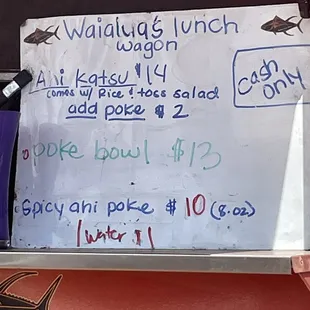 Waialua's lunch
wagon
Cash
only
Ahi Katsu $14
comes w/ Rice & toss salad
add poke $2
poke bowl $13
Spicy ahi poke $10 (8.oz)
1 water $1